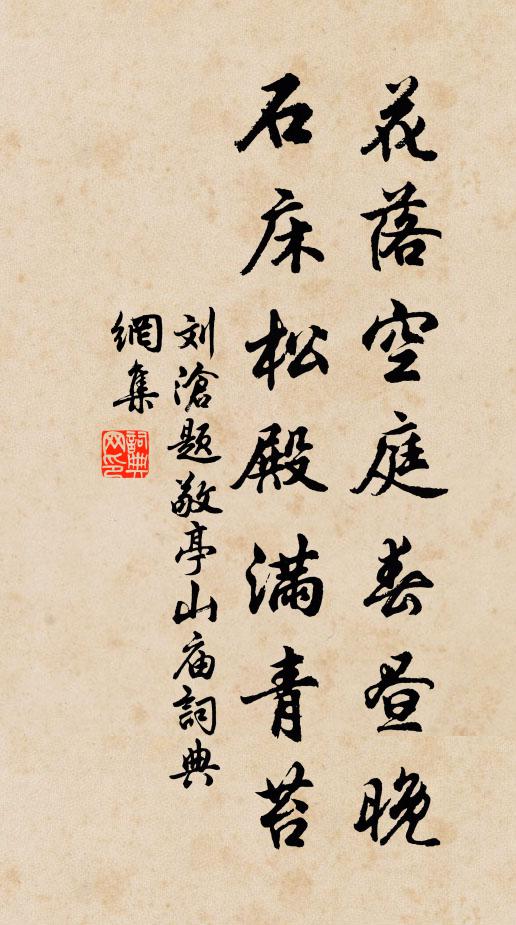 花落空庭春昼晚
石床松殿满青苔
刘滄题敬亭山庙詞典
網集
詞典
网印